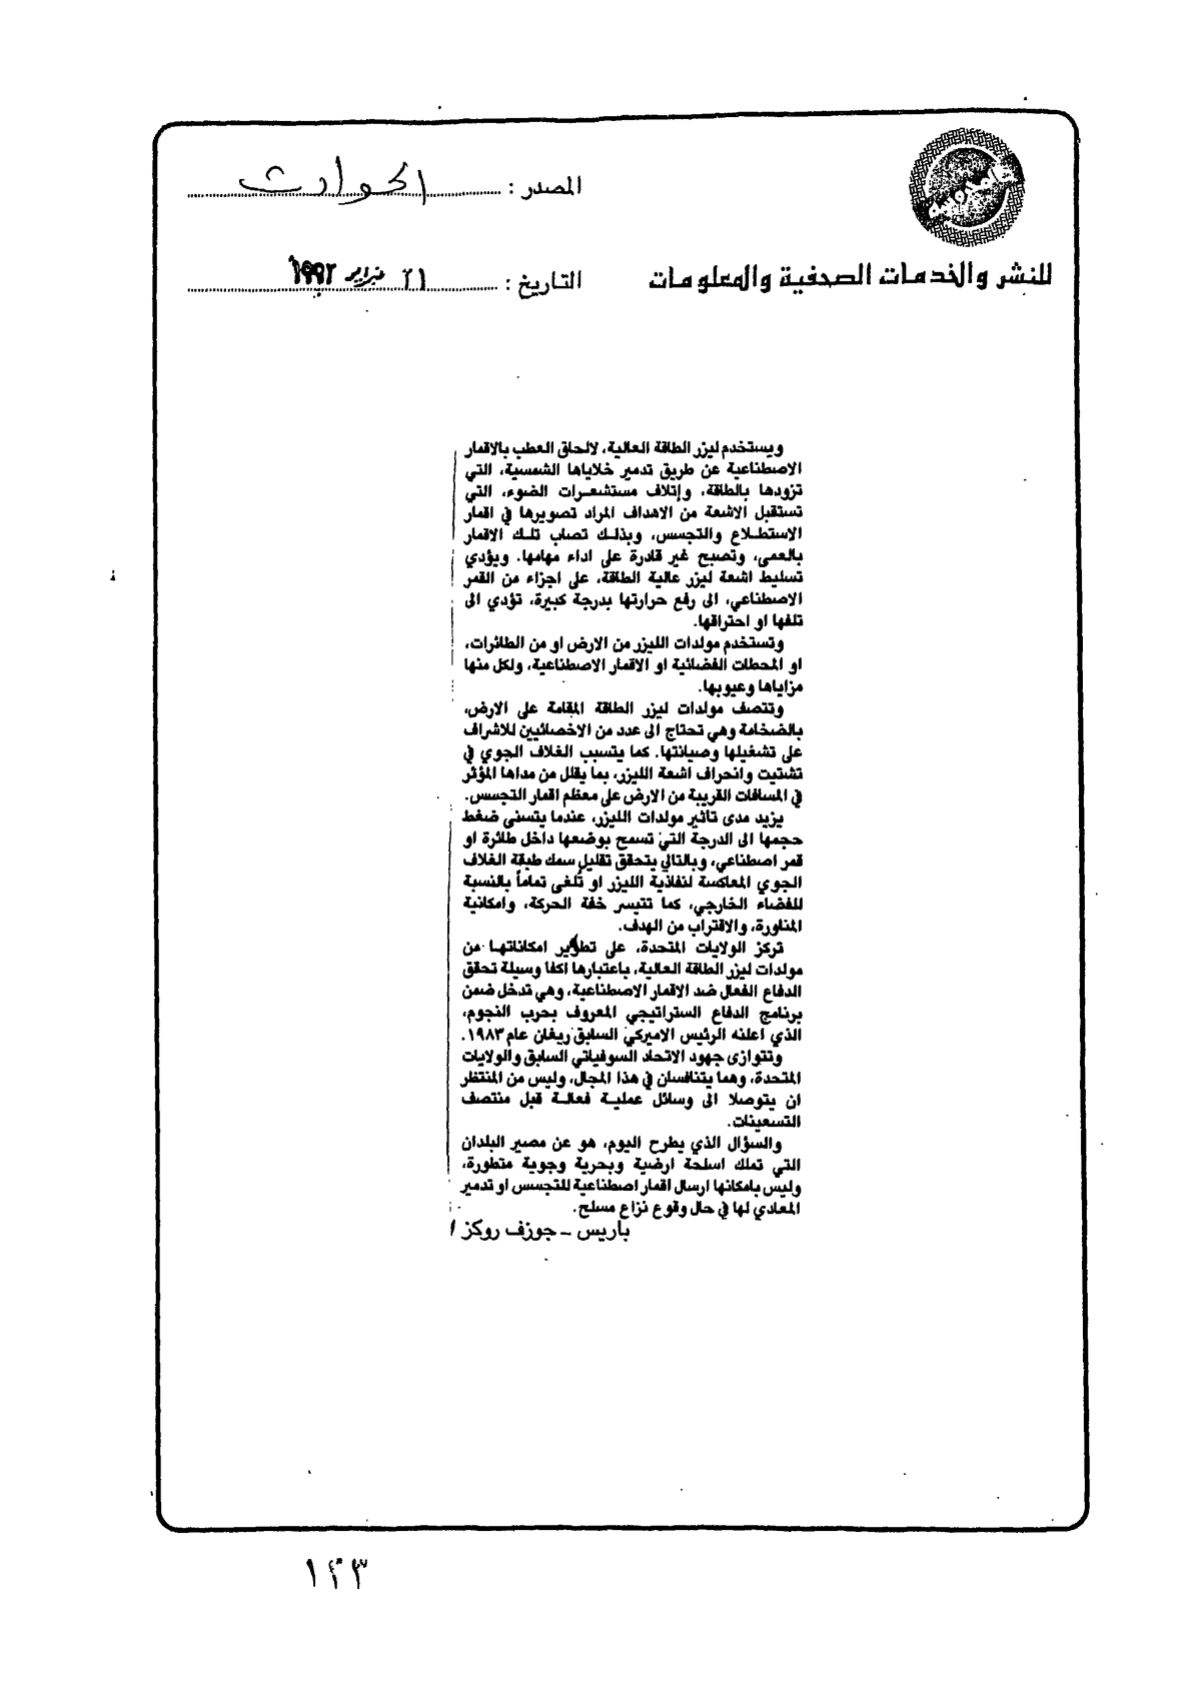 المصدر : الحوادث
للنشر والخدمات الصحفية والمعلومات
التاريخ : ٢١ فبراير ١٩٩٢
ويستخدم ليزر الطاقة العالية، لالحاق العطب بالاقمار
الاصطناعية عن طريق تدمير خلاياها الشمسية، التي
تزودها بالطاقة، وإتلاف مستشعرات الضوء، التي
تستقبل الاشعة من الاهداف المراد تصويرها في اقمار
الاستطلاع والتجسس، وبذلك تصاب تلك الاقمار
بالعمى، وتصبح غير قادرة على اداء مهامها. ويؤدي
تسليط اشعة ليزر عالية الطاقة، على اجزاء من القمر
الاصطناعي، الى رفع حرارتها بدرجة كبيرة، تؤدي الى
تلفها او احتراقها.
وتستخدم مولدات الليزر من الارض او من الطائرات،
او المحطات الفضائية او الاقمار الاصطناعية، ولكل منها
مزاياها وعيوبها.
وتتصف مولدات ليزر الطاقة المقامة على الارض،
بالضخامة وهي تحتاج الى عدد من الاخصائيين للاشراف
على تشغيلها وصيانتها. كما يتسبب الغلاف الجوي في
تشتيت وانحراف اشعة الليزر، بما يقلل من مداها المؤثر
في المسافات القريبة من الارض على معظم اقمار التجسس.
يزيد مدى تاثير مولدات الليزر، عندما يتسنى ضغط
حجمها الى الدرجة التي تسمح بوضعها داخل طائرة او
قمر اصطناعي، وبالتالي يتحقق تقليل سمك طبقة الغلاف
الجوي المعاكسة لنفاذية الليزر او تُلغى تماماً بالنسبة
للفضاء الخارجي، كما تتيسر خفة الحركة، وامكانية
المناورة، والاقتراب من الهدف.
تركز الولايات المتحدة، على تطوير امكاناتها من
مولدات ليزر الطاقة العالية، باعتبارها اكفا وسيلة تحقق
الدفاع الفعال ضد الاقمار الاصطناعية، وهي تدخل ضمن
برنامج الدفاع الستراتيجي المعروف بحرب النجوم،
الذي اعلنه الرئيس الاميركي السابق ريغان عام ١٩٨٣.
وتتوازى جهود الاتحاد السوفياتي السابق والولايات
المتحدة، وهما يتنافسان في هذا المجال، وليس من المنتظر
ان يتوصلا الى وسائل عملية فعالة قبل منتصف
التسعينات.
والسؤال الذي يطرح اليوم، هو عن مصير البلدان
التي تملك اسلحة ارضية وبحرية وجوية متطورة،
وليس بامكانها ارسال اقمار اصطناعية للتجسس او تدمير
المعادي لها في حال وقوع نزاع مسلح.
باريس ــ جوزف روكز
١٤٣